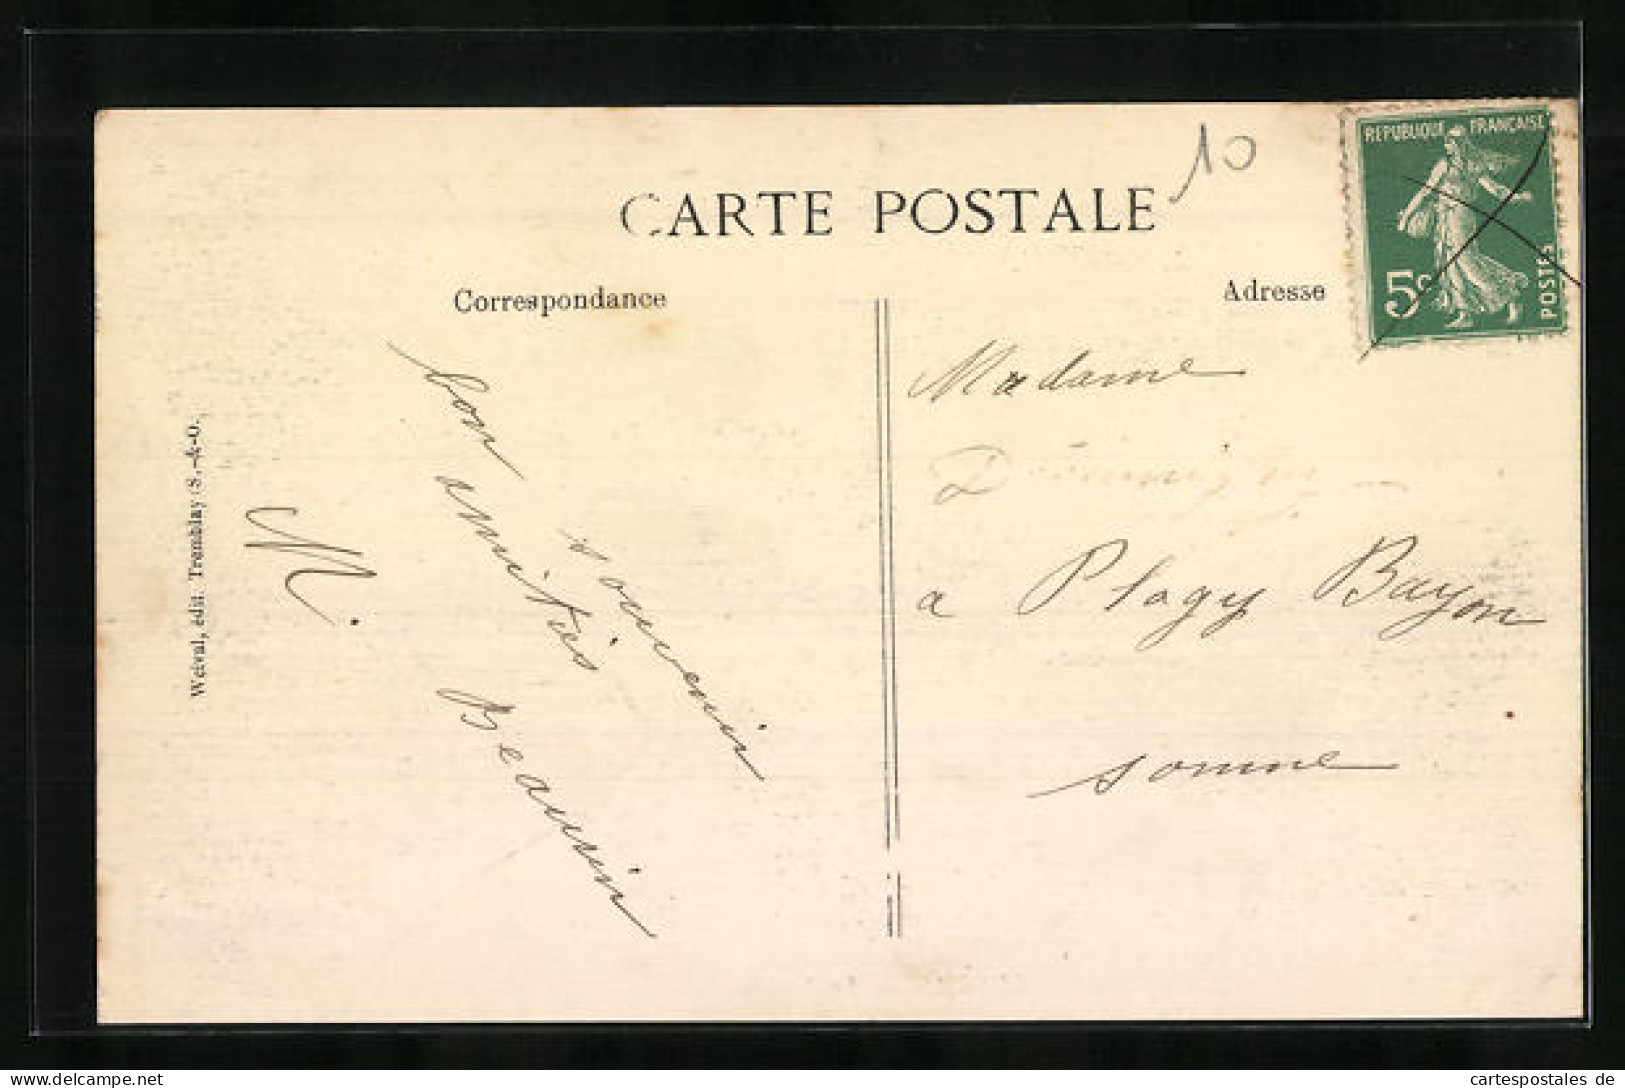 10
CARTE POSTALE
REPUBLIQUE FRANÇAISE
5c
POSTES
Correspondance
Adresse
Madame
a Plagy Bayon
somme
bon souvenir
amitiés
M. Beauvin
Weival, édit. Tremblay (S.-&-O.)
delcampe.net
cartespostales de